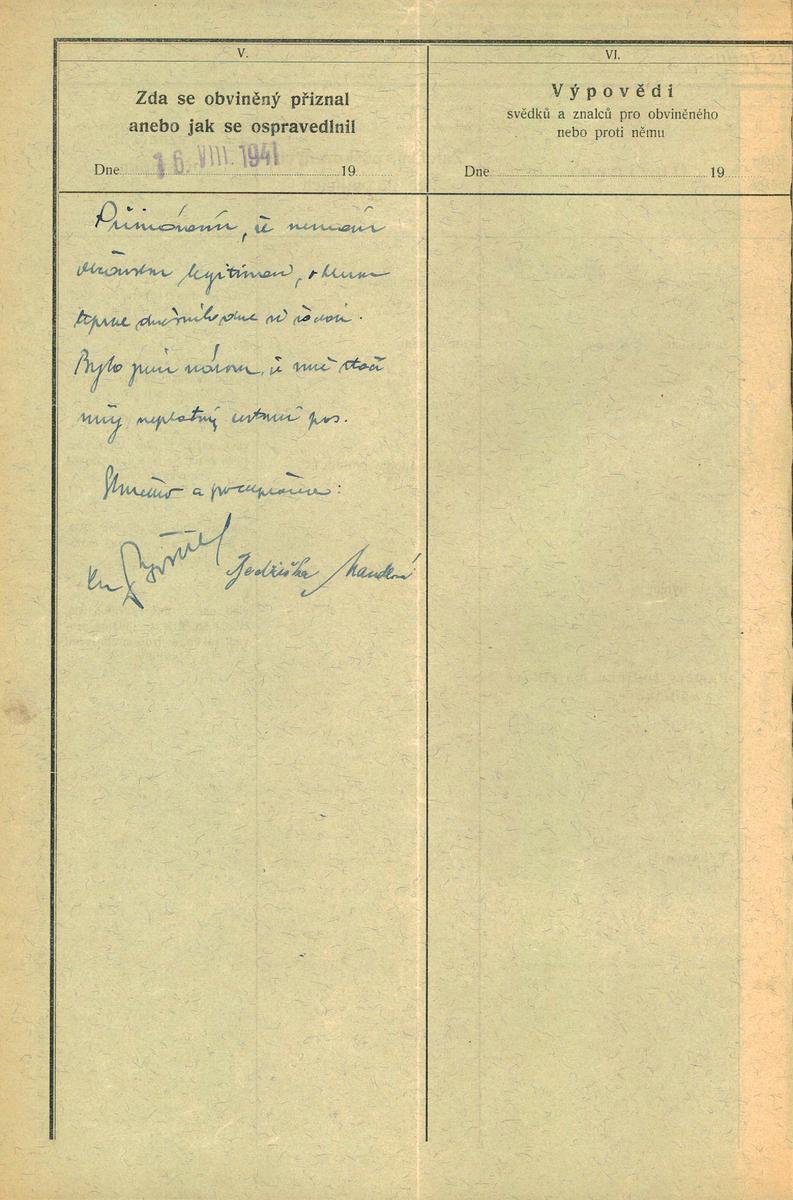 V.
Zda se obviněný přiznal
anebo jak se ospravedlnil
Dne 16. VIII. 1941 19
Přiznávám, že nemám
občanskou legitimaci, o kterou
teprve dnešního dne si žádám.
Bylo jsem názoru, že mně stačí
můj neplatný cestovní pas.
Skončeno a podepsáno:
Jedřiška Mandlová
VI.
Výpovědi
svědků a znalců pro obviněného
nebo proti němu
Dne 19